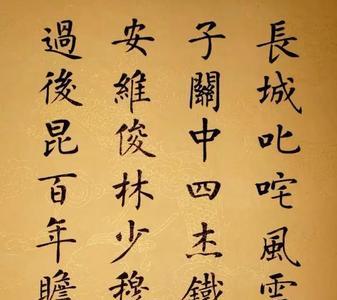 長城叱咤風雲
子關中四杰鐵
安維俊林少穆
過後昆百年瞻